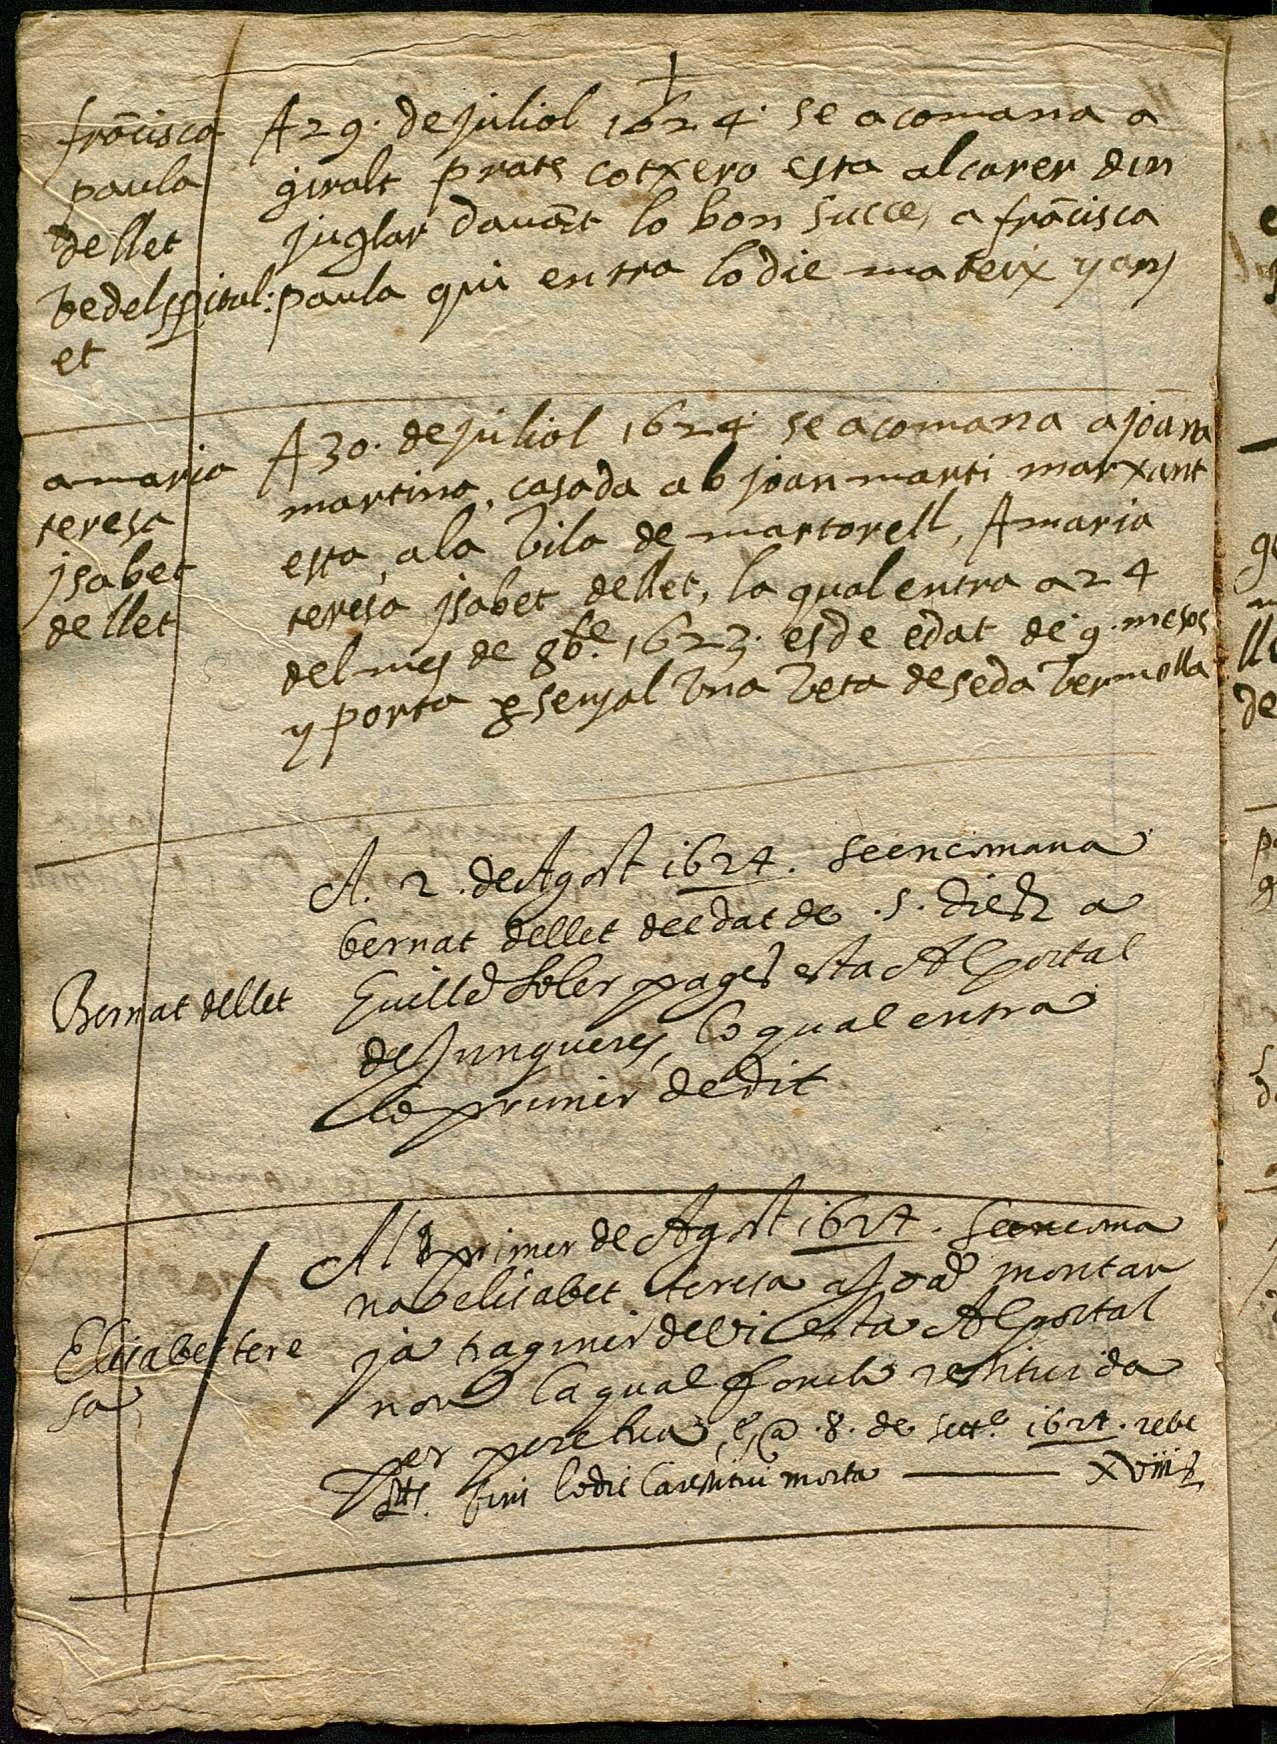 frācisca
paula
de llet
ve del spital:
et
A 29. de juliol 1624 se acomana a
giralt prats cotxero esta al carer den
juglar davāt lo bon succes, a frācisca
paula qui entra lo die mateix y any
a maria
teresa
ysabet
de llet
A 30. de juliol 1624 se acomana a joana
martina, casada ab joan marti marxant
esta, a la vila de martorell, A maria
teresa ysabet de llet, la qual entra a 24
del mes de 8bre. 1623. es de edat de 9. mesos
y porta p senyal vna veta de seda vermella
Bernat de llet
A. 2. de Agost 1624. se encomana
bernat de llet de edat de .5. dies a
Guillē soler pages esta Al portal
de Junqueres, lo qual entra
lo primer de dit
Elisabet tere
sa
Al primer de Agost 1624. se encoma
na elisabet teresa a Joā montan
ya traginer de vi esta Al portal
nou la qual fonch restituida
per peretua, a .8. de setᵉ. 1624. rebe
fins lo die la restitui morta ——— XVIII